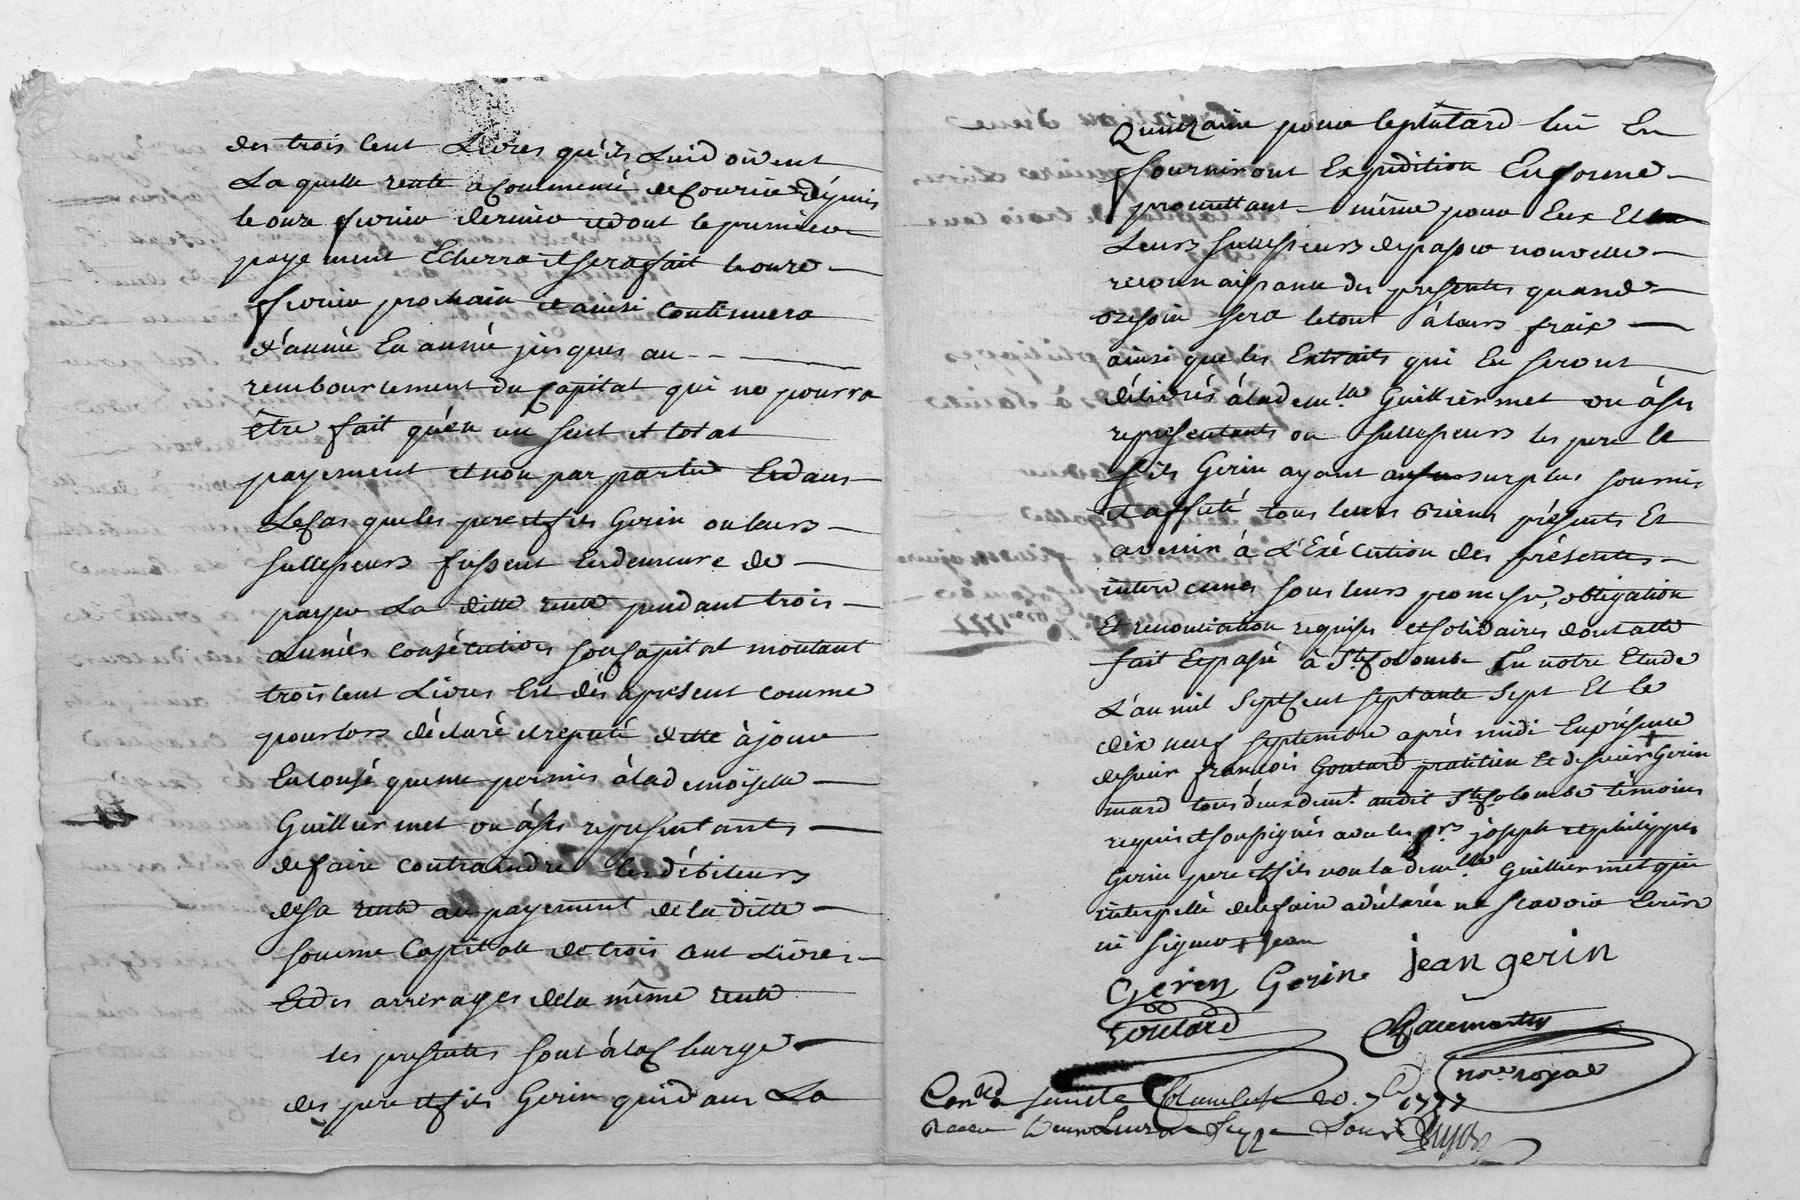 des trois cent Livres qu'ils Luidoivent
La quelle rente a Commencé de Courir dépuis
le onze fevrier dernier et dont le premier
payement Echerra et sera fait le onze
fevrier prochain et ainsi Continuera
d'année En année jusques au
remboursement du Capital qui ne pourra
être fait qu'en un seul et total
payement et non par partie Et dans
Le Cas que les pere et fils Gerin ou leurs
successeurs fussent En demeure de
payer La ditte rente pendant trois
années consécutives son Capital montant
trois cent Livres Est dés apresent comme
pour lors déclaré et reputé dette àjour
Ensorte que permis à la demoiselle
Guilliermet ou à ses representants
de faire contraindre les débiteurs
de sa rente au payement de la ditte
somme Capitale de trois cent Livres
Et des arrerages de la même rente
les presentes sont à la Charge
des pere et fils Gerin qui dans La
Quinzaine pour le plutard lui En
fourniront Expedition En forme
promettant même pour Eux Et
Leurs successeurs de passer nouvelle
reconnaissance des presentes quand
besoin sera le tout à leurs fraix
ainsi que les Extraits qui En seront
délivrés à la dem.lle Guilliermet ou à ses
representants ou successeurs les pere et
fils Gerin ayant au surplus soumis
et affecté tous leurs biens présents Et
avenir à L'Exécution des présentes
sous leurs promesse, obligation
Et renonciation requises et solidaires dont acte
fait Et passé à Ste Colombe En notre Etude
L'an mil Sept Cent septante sept Et le
dix neuf septembre après midi En présence
de sieur françois Goutard praticien Et de sieur + Gerin
tous deux dem.t au dit Ste Colombe témoins
requis et soussignés avec les srs joseph et philippe
Gerin pere et fils non la dem.lle Guilliermet qui
interpellé de le faire a déclarée ne scavoir Ecrire
ni signer + jean
Gerin Gerin jean gerin
Goutard
nore royal
Conlé a Sainte Colombe le 20. 7bre 1777